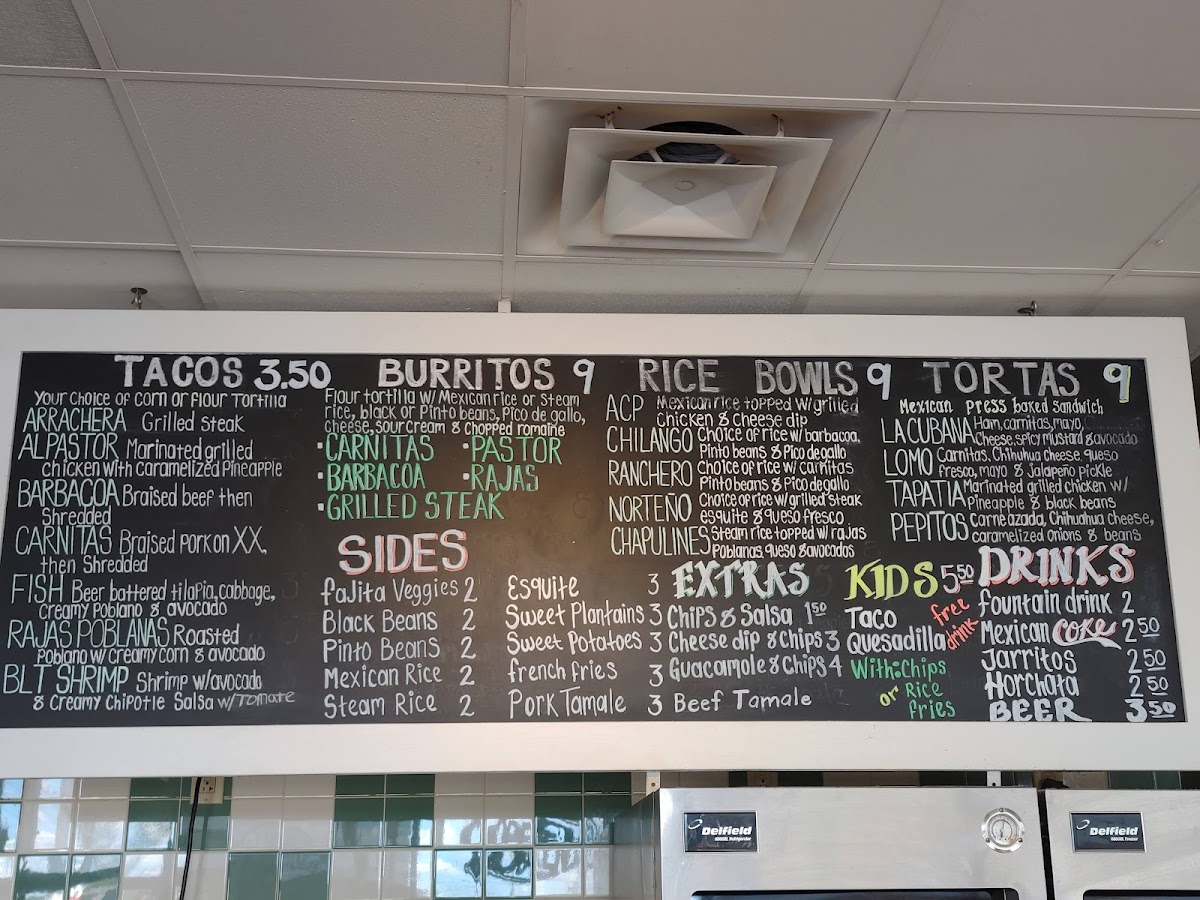 TACOS 3.50
Your choice of corn or flour tortilla
ARRACHERA Grilled steak
ALPASTOR Marinated grilled
chicken with caramelized Pineapple
BARBACOA Braised beef then
Shredded
CARNITAS Braised pork on XX,
then Shredded
FISH Beer battered tilapia, cabbage,
creamy Poblano & avocado
RAJAS POBLANAS Roasted
Poblano w/ creamy corn & avocado
BLT SHRIMP Shrimp w/avocado
& Creamy Chipotle Salsa w/Tomate
BURRITOS 9
Flour tortilla w/ Mexican rice or Steam
rice, black or Pinto beans, Pico de gallo,
cheese, sour cream & chopped romaine
·CARNITAS ·PASTOR
·BARBACOA ·RAJAS
·GRILLED STEAK
SIDES
fajita Veggies 2
Black Beans 2
Pinto Beans 2
Mexican Rice 2
Steam Rice 2
Esquite 3
Sweet Plantains 3
Sweet Potatoes 3
french fries 3
Pork Tamale 3
RICE BOWLS 9
ACP Mexican rice topped w/grilled
Chicken & Cheese dip
CHILANGO Choice of rice w/barbacoa,
Pinto beans & Pico de gallo
RANCHERO Choice of rice w/ carnitas
Pinto beans & Pico de gallo
NORTEÑO Choice of rice w/grilled steak
esquite & queso fresco
CHAPULINES Steam rice topped w/rajas
Poblanas, queso & avocados
EXTRAS
Chips & Salsa 1.50
Cheese dip & Chips 3
Guacamole & Chips 4
Beef Tamale
TORTAS 9
Mexican press baked sandwich
LA CUBANA Ham, carnitas, mayo,
Cheese, spicy mustard & avocado
LOMO Carnitas, Chihuahua Cheese, queso
fresco, mayo & Jalapeño pickle
TAPATIA Marinated grilled chicken w/
Pineapple & black beans
PEPITOS Carne azada, Chihuahua cheese,
caramelized onions & beans
KIDS 5.50
Taco
Quesadilla
free
drink
With: Chips
or Rice
fries
DRINKS
fountain drink 2
Mexican Coke 2.50
Jarritos 2.50
Horchata 2.50
BEER 3.50
Delfield
Delfield